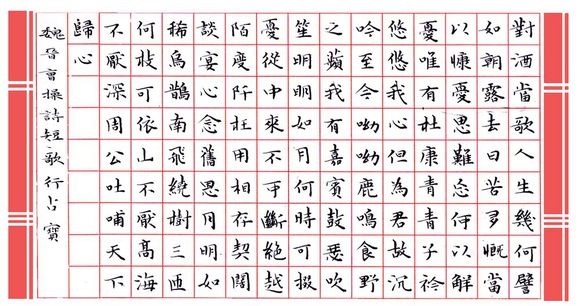 對酒當歌人生幾何譬
如朝露去日苦多慨當
以慷憂思難忘何以解
憂唯有杜康青青子衿
悠悠我心但為君故沉
吟至今呦呦鹿鳴食野
之蘋我有嘉賓鼓瑟吹
笙明明如月何時可掇
憂從中來不可斷絕越
陌度阡枉用相存契闊
談宴心念舊恩月明如
稀烏鵲南飛繞樹三匝
何枝可依山不厭高海
不厭深周公吐哺天下
歸心
魏晉曹操詩短歌行占寶